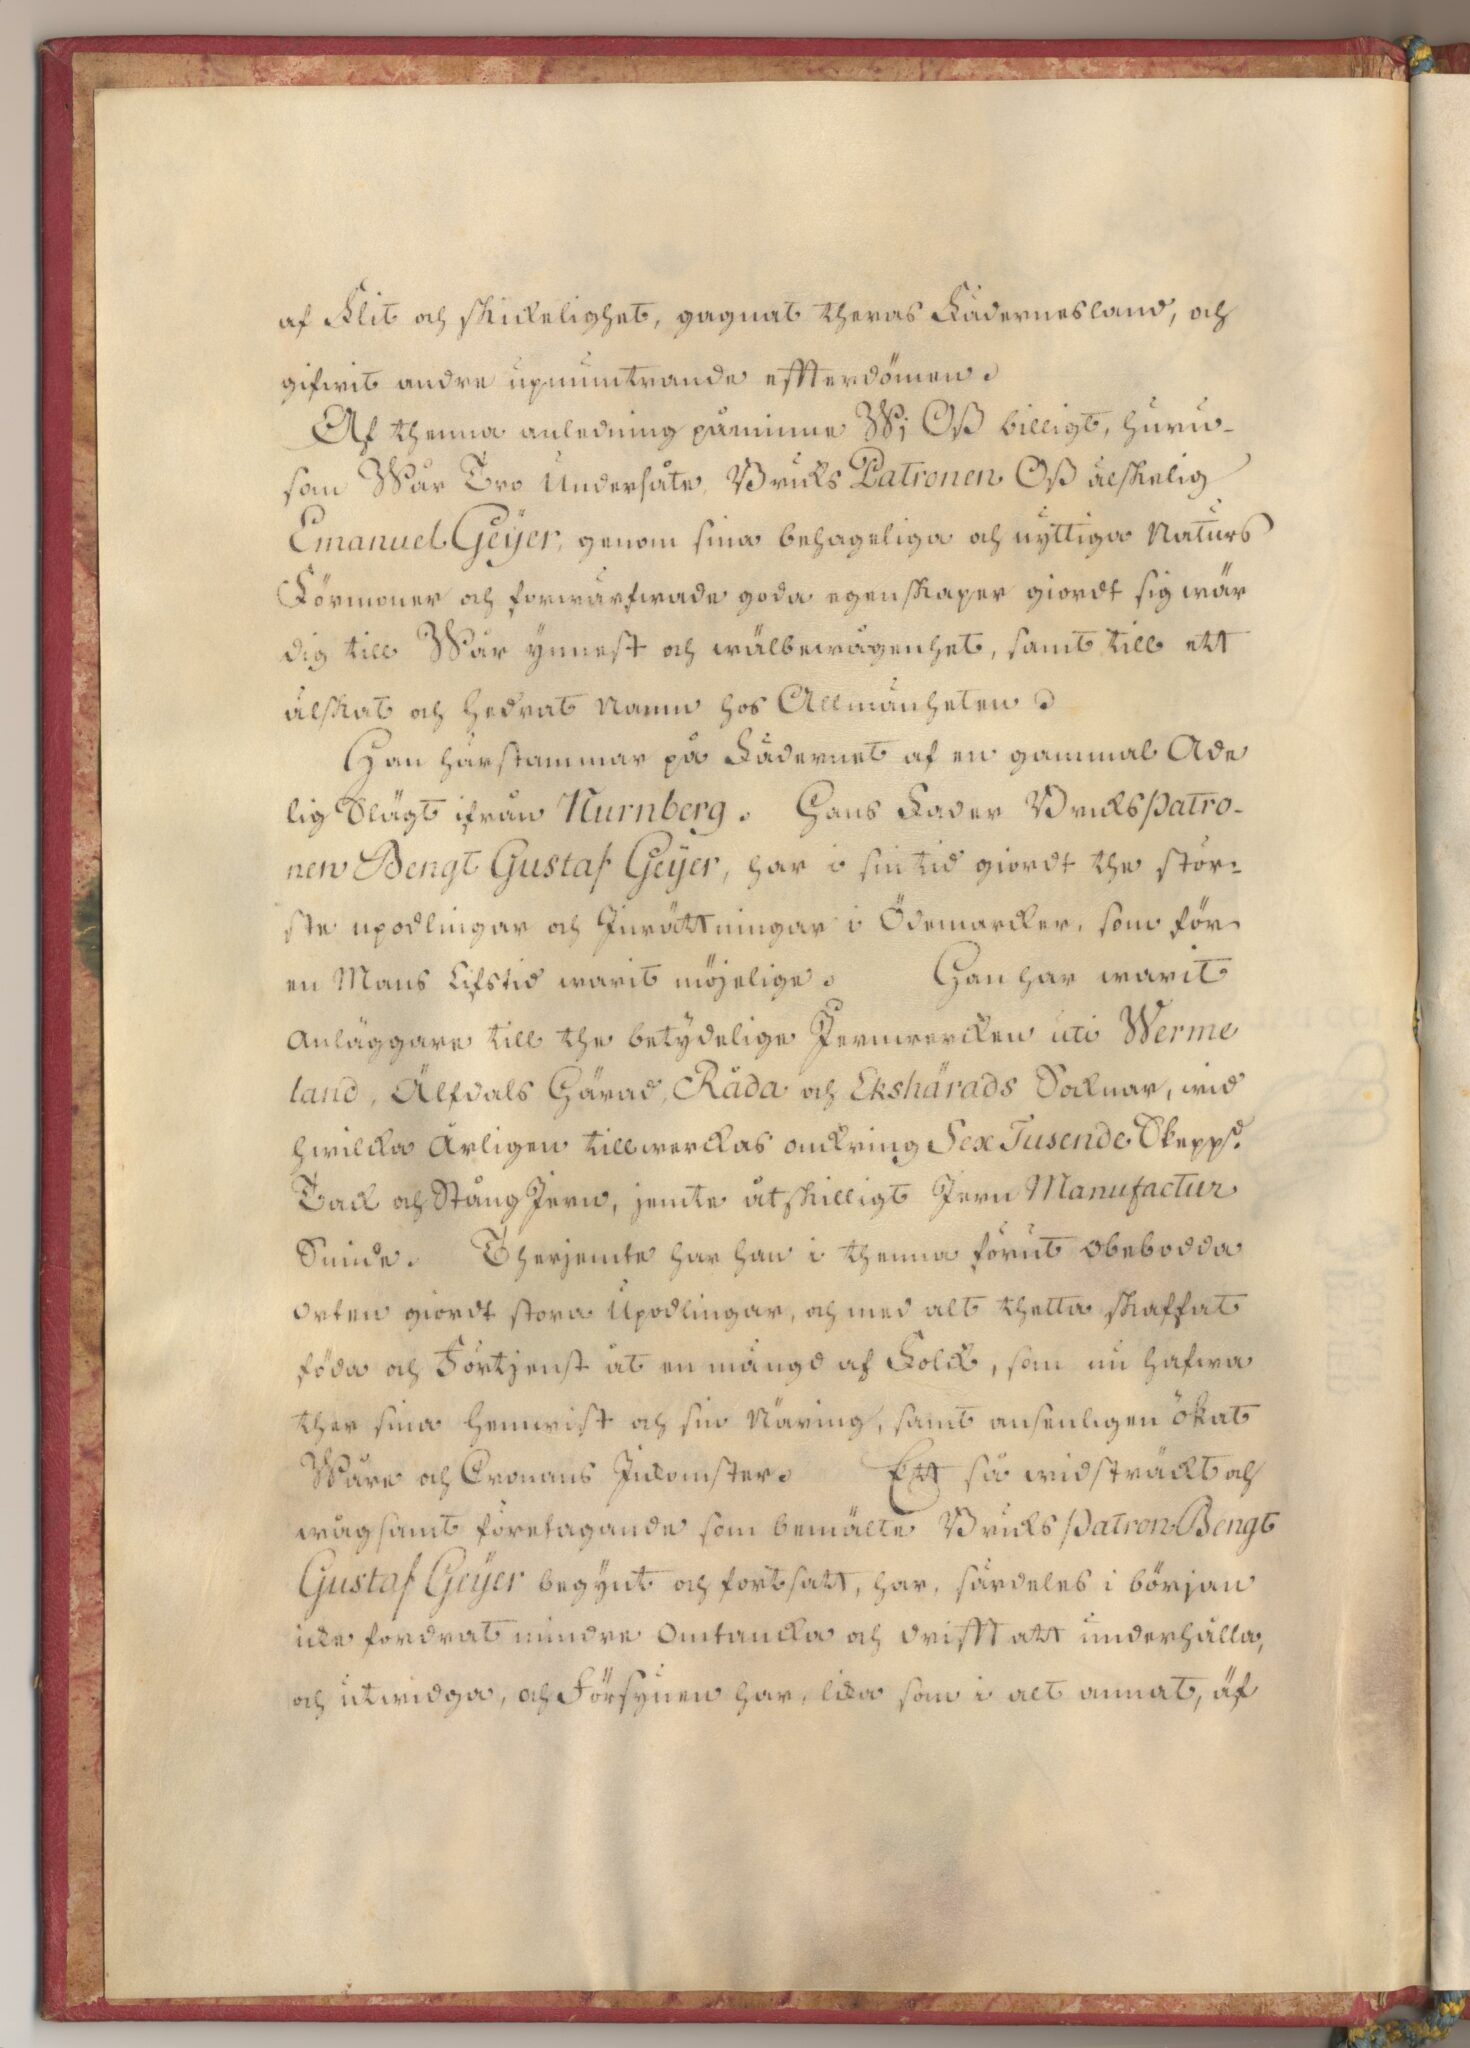 af Flit och skickelighet, gagnat theras Fädernesland, och
gifwit andre upmuntrande effterdömen.
Af thenna anledning påminne Wj Oß billigt, huru-
som Wår Tro Undersåte, Bruks Patronen Oß älskelig
Emanuel Geÿer, genom sina behageliga och nyttiga Naturs
Förmoner och förwärfwade goda egenskaper giordt sig wär
dig till Wår ynnest och wälbewågenhet, samt till ett
älskat och hedrat Namn hos Allmänheten.
Han härstammar på Fädernet af en gammal Ade
lig Slägt ifrån Nurnberg. Hans Fader Bruks Patro-
nen Bengt Gustaf Geÿer, har i sin tid giordt the stör-
ste upodlingar och Inrättningar i Ödemarcker, som för
en Mans Lifstid warit möjelige. Han har warit
Anläggare till the betÿdelige Jernwercken uti Werme
land, Älfdals Härad, Råda och Ekshärads Socknar, wid
hwilcka Årligen tillwerckas omkring Sex Tusende Skepp.d
Tack och Stång Jern, jemte åtskilligt Jern Manufactur
Smide. Therjemte har han i thenna förut obebodda
orten giordt stora Upodlingar, och med alt thetta skaffat
föda och Förtjenst åt en mängd af Folck, som nu hafwa
ther sina hemwist och sin Näring, samt ansenligen ökat
Wåre och Cronans Inkomster. Ett så widsträckt och
wågsamt företagande som bemälte Bruks Patron Bengt
Gustaf Geÿer begÿnt och fortsatt, har, särdeles i början
icke fordrat mindre omtancka och drifft att underhålla,
och utwidga, och Försynen har, lika som i alt annat, äf